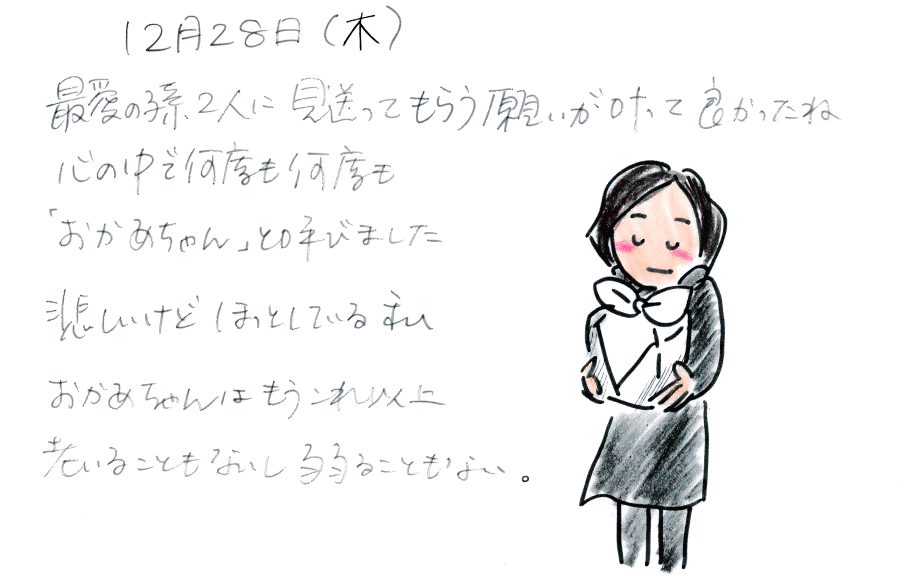 12月28日(木)
最愛の孫、2人に見送ってもらう願いが叶って良かったね
心の中で何度も何度も
「おかあちゃん」と呼びました
悲しいけどほっとしている私
おかあちゃんはもうこれ以上
老いることもないし弱ることもない。